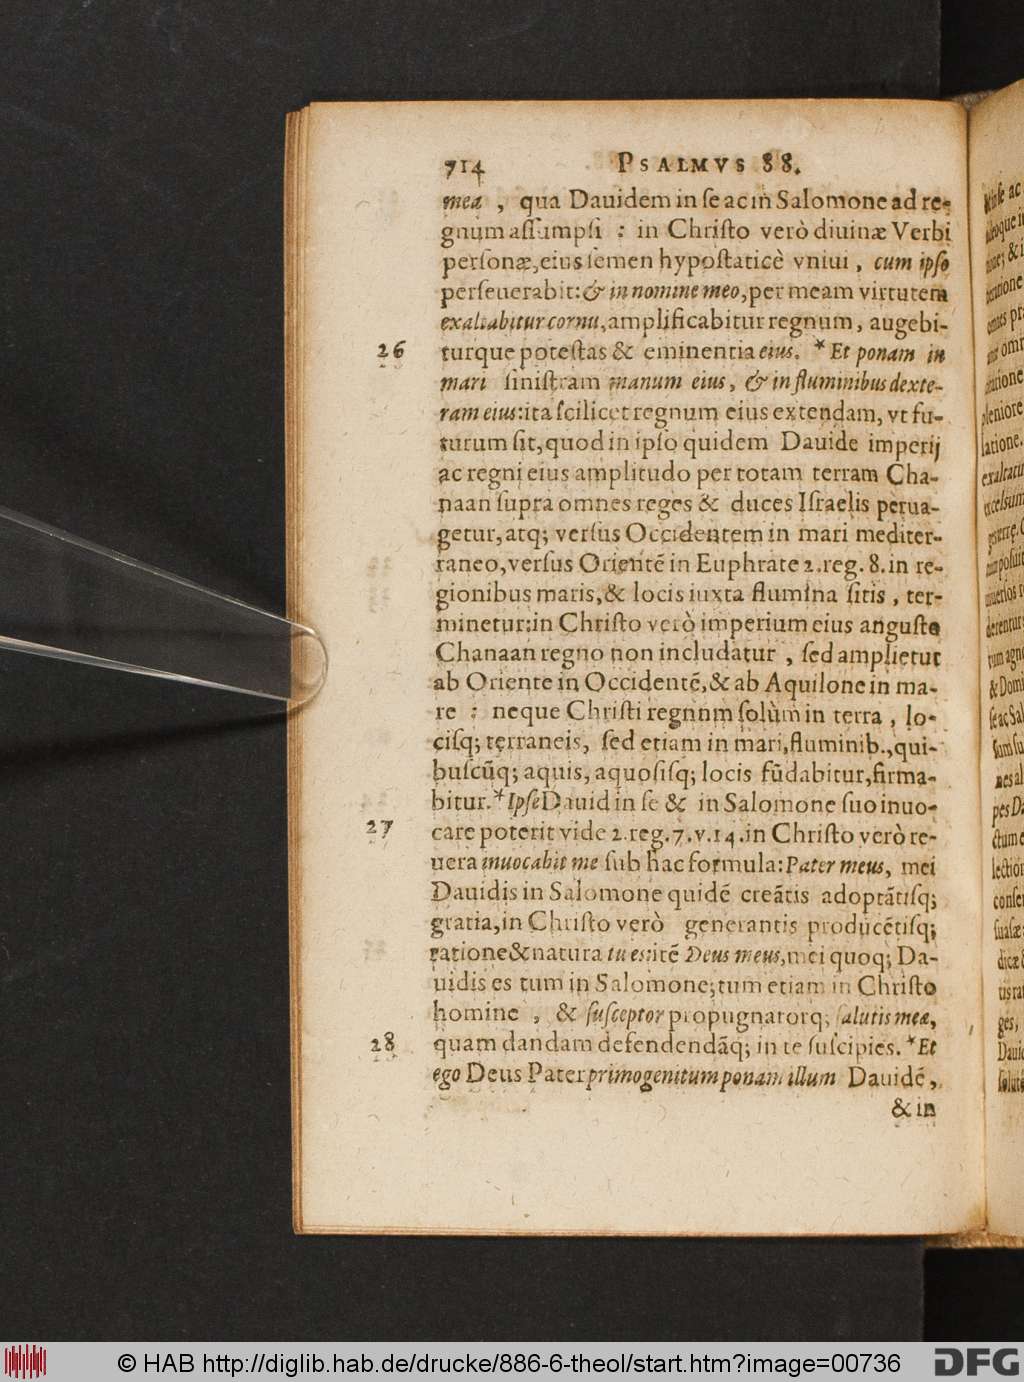 714 PSALMVS 88.
mea , qua Dauidem in ſe ac in Salomone ad re-
gnum aſſumpſi : in Chriſto verò diuinæ Verbi
perſonæ,eius ſemen hypoſtaticè vniui , cum ipſo
perſeuerabit:& in nomine meo,per meam virtutem
exaltabitur cornu,amplificabitur regnum, augebi-
26 turque poteſtas & eminentia eius. * Et ponam in
mari ſiniſtram manum eius, & in fluminibus dexte-
ram eius:ita ſcilicet regnum eius extendam, vt fu-
turum ſit,quod in ipſo quidem Dauide imperij
ac regni eius amplitudo per totam terram Cha-
naan ſupra omnes reges & duces Iſraelis perua-
getur,atq; verſus Occidentem in mari mediter-
raneo,verſus Orientē in Euphrate 2.reg. 8. in re-
gionibus maris,& locis iuxta flumina ſitis , ter-
minetur:in Chriſto verò imperium eius anguſto
Chanaan regno non includatur , ſed amplietur
ab Oriente in Occidentē,& ab Aquilone in ma-
re : neque Chriſti regnum ſolùm in terra , lo-
ciſq; terraneis, ſed etiam in mari,fluminib.,qui-
buſcūq; aquis, aquoſiſq; locis fūdabitur,firma-
bitur.* Ipſe Dauid in ſe & in Salomone ſuo inuo-
27 care poterit vide 2.reg.7.v.14.in Chriſto verò re-
uera inuocabit me ſub hac formula:Pater meus, mei
Dauidis in Salomone quidē creātis adoptātiſq;
gratia,in Chriſto verò generantis producētiſq;
ratione & natura tu es:itē Deus meus,mei quoq; Da-
uidis es tum in Salomone;tum etiam in Chriſto
homine , & ſuſceptor propugnatorq; ſalutis meæ,
28 quam dandam defendendāq; in te ſuſcipies. * Et
ego Deus Pater primogenitum ponam illum Dauidē,
& in
© HAB http://diglib.hab.de/drucke/886-6-theol/start.htm?image=00736
DFG